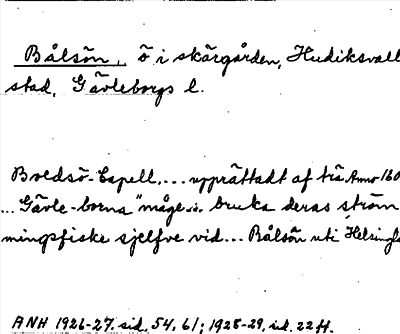 Bålsön, ö i skärgården, Hudiksvall
stad, Gävleborgs l.
Boedsö-Capell, ... upprättadt af trä Anno 160
... Gävle-borna "måge ... bruka deras ström
mingsfiske sjelfve vid ... Bålsön uti Helsingl
ANH 1926-27. sid. 54, 61; 1928-29, sid. 22 ff.